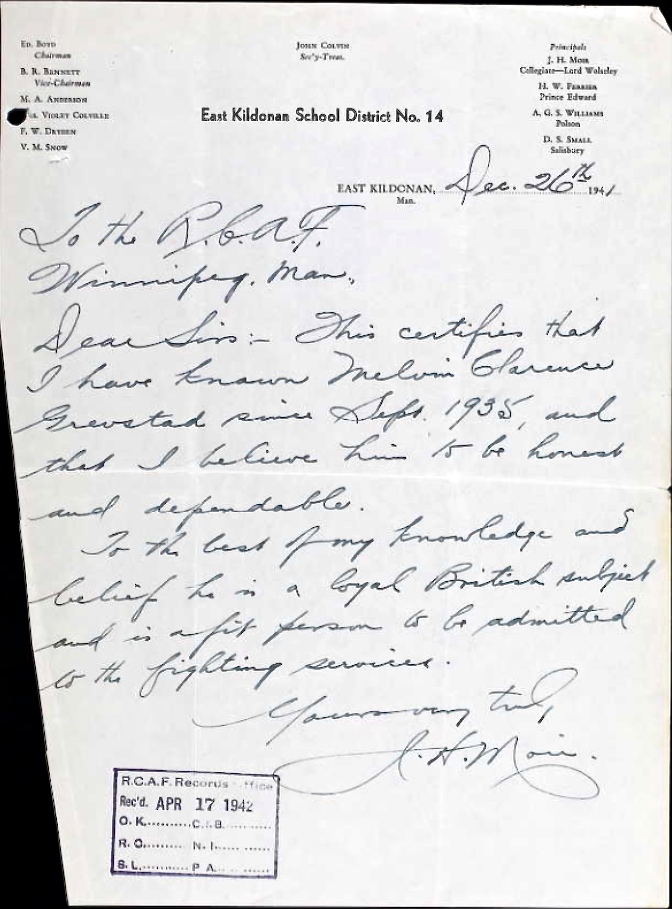 Ed. Boyd
Chairman
B. R. Bannett
Vice-Chairman
M. A. Anderson
Violet Colville
F. W. Dryden
V. M. Snow
John Colvin
Sec'y-Treas.
Principals
J. H. Moir
Collegiate—Lord Wolseley
H. W. Ferrier
Prince Edward
A. G. S. Williams
Polson
D. S. Small
Salisbury
East Kildonan School District No. 14
EAST KILDONAN, Dec. 26th 1941
Man.
To the R.C.A.F.
Winnipeg, Man.,
Dear Sirs:- This certifies that
I have known Melvin Clarence
Grevstad since Sept. 1935, and
that I believe him to be honest
and dependable.
To the best of my knowledge and
belief he is a loyal British subject
and is a fit person to be admitted
to the fighting services.
Yours very truly
J. H. Moir.
R.C.A.F. Records Office
Rec'd. APR 17 1942
O. K.......... C.I.B...........
R. O.......... N. I...........
S. L........... P A...........